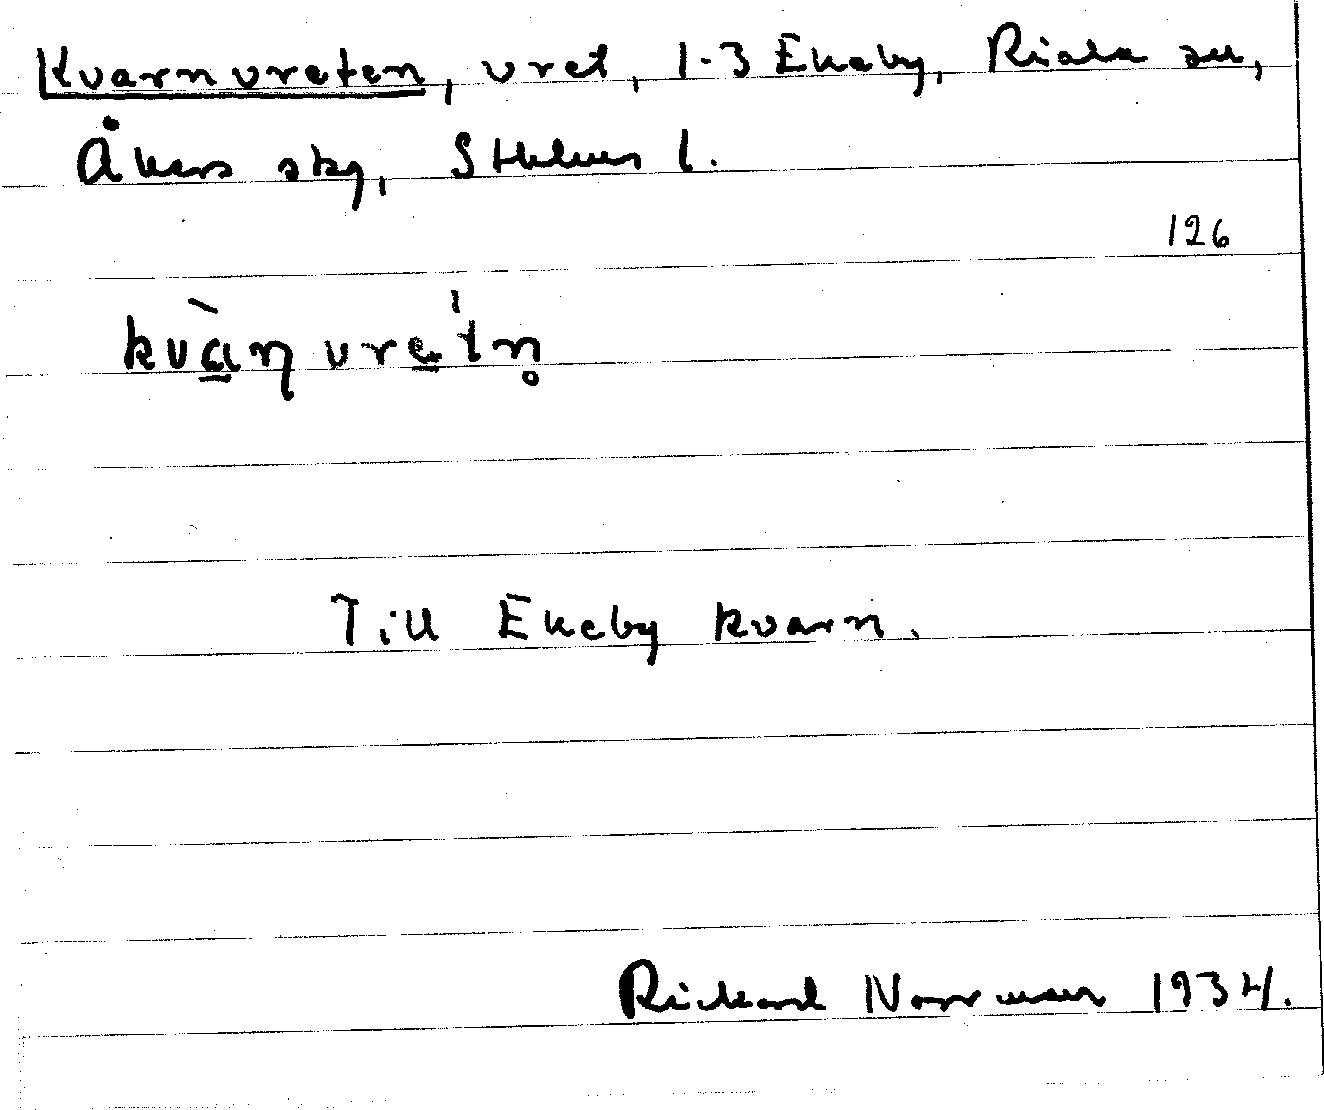 Kvarnvreten, vret, 1-3 Ekeby, Riala sn,
Åkers skg, Sthlms l.
126
kvàɳvre̠'tn̥
Till Ekeby kvarn.
Rickard Norrman 1934.